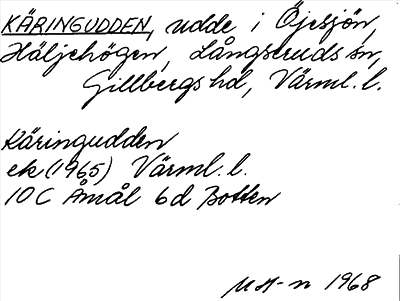 KÄRINGUDDEN, udde i Öjesjön,
Häljehögen, Långseruds sn,
Gillbergs hd, Värml. l.
Käringudden
ek (1965) Värml. l.
10 C Åmål 6 d Botten
M H-n 1968